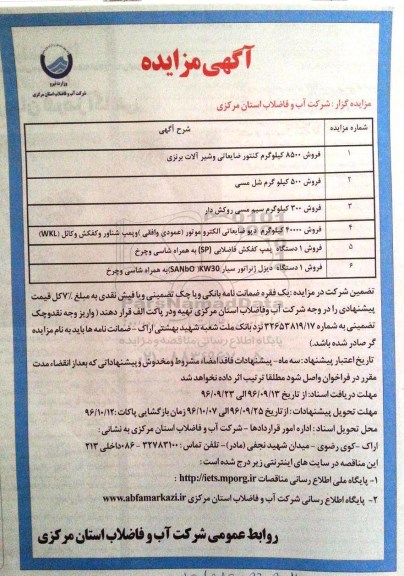 آگهی مزایده
وزارت نیرو
شرکت آب و فاضلاب استان مرکزی
مزایده گزار : شرکت آب و فاضلاب استان مرکزی
شماره مزایده شرح آگهی
۱ فروش ۸۵۰۰ کیلوگرم کنتور ضایعاتی وشیر آلات برنزی
۲ فروش ۵۰۰ کیلو گرم شل مسی
۳ فروش ۳۰۰ کیلوگرم سیم مسی روکش دار
۴ فروش ۴۰۰۰۰ کیلوگرم دپو ضایعاتی الکترو موتور (عمودی وافقی )وپمپ شناور وکفکش وکائل (WKL)
۵ فروش ۱ دستگاه پمپ کفکش فاضلابی (SP) به همراه شاسی وچرخ
۶ فروش ۱ دستگاه دیزل ژنراتور سیار SANbO )KW30)به همراه شاسی وچرخ
تضمین شرکت در مزایده :یک فقره ضمانت نامه بانکی ویا چک تضمینی ویا فیش نقدی به مبلغ ۷٪کل قیمت
پیشنهادی را در وجه شرکت آب وفاضلاب استان مرکزی تهیه ودر پاکت الف قرار دهند ( واریز وجه نقدوچک
تضمینی به شماره ۳۲۶۵۳۸۱۹/۱۷ نزد بانک ملت شعبه شهید بهشتی اراک - ضمانت نامه ها باید به نام مزایده
گر صادر شده باشد.)
تاریخ اعتبار پیشنهاد : سه ماه - پیشنهادات فاقد امضاء مشروط ومخدوش و پیشنهاداتی که بعداز انقضاء مدت
مقرر در فراخوان واصل شود مطلقا ترتیب اثر داده نخواهد شد
مهلت دریافت اسناد: از تاریخ ۹۶/۰۹/۱۳ الی ۹۶/۰۹/۲۳
مهلت تحویل پیشنهادات : از تاریخ ۹۶/۰۹/۲۵ الی ۹۶/۱۰/۰۷ زمان بازگشایی پاکات :۹۶/۱۰/۱۲
محل تحویل اسناد : اداره امور قراردادها - شرکت آب و فاضلاب استان مرکزی به نشانی :
اراک -کوی رضوی - میدان شهید نجفی (مادر)- تلفن تماس : ۳۲۷۸۳۱۰۰ -۰۸۶داخلی ۲۱۳
این مناقصه در سایت های اینترنتی زیر درج شده است :
۱- پایگاه ملی اطلاع رسانی مناقصات http://iets.mporg.ir :
۲- پایگاه اطلاع رسانی شرکت آب و فاضلاب استان مرکزی www.abfamarkazi.ir
روابط عمومی شرکت آب و فاضلاب استان مرکزی